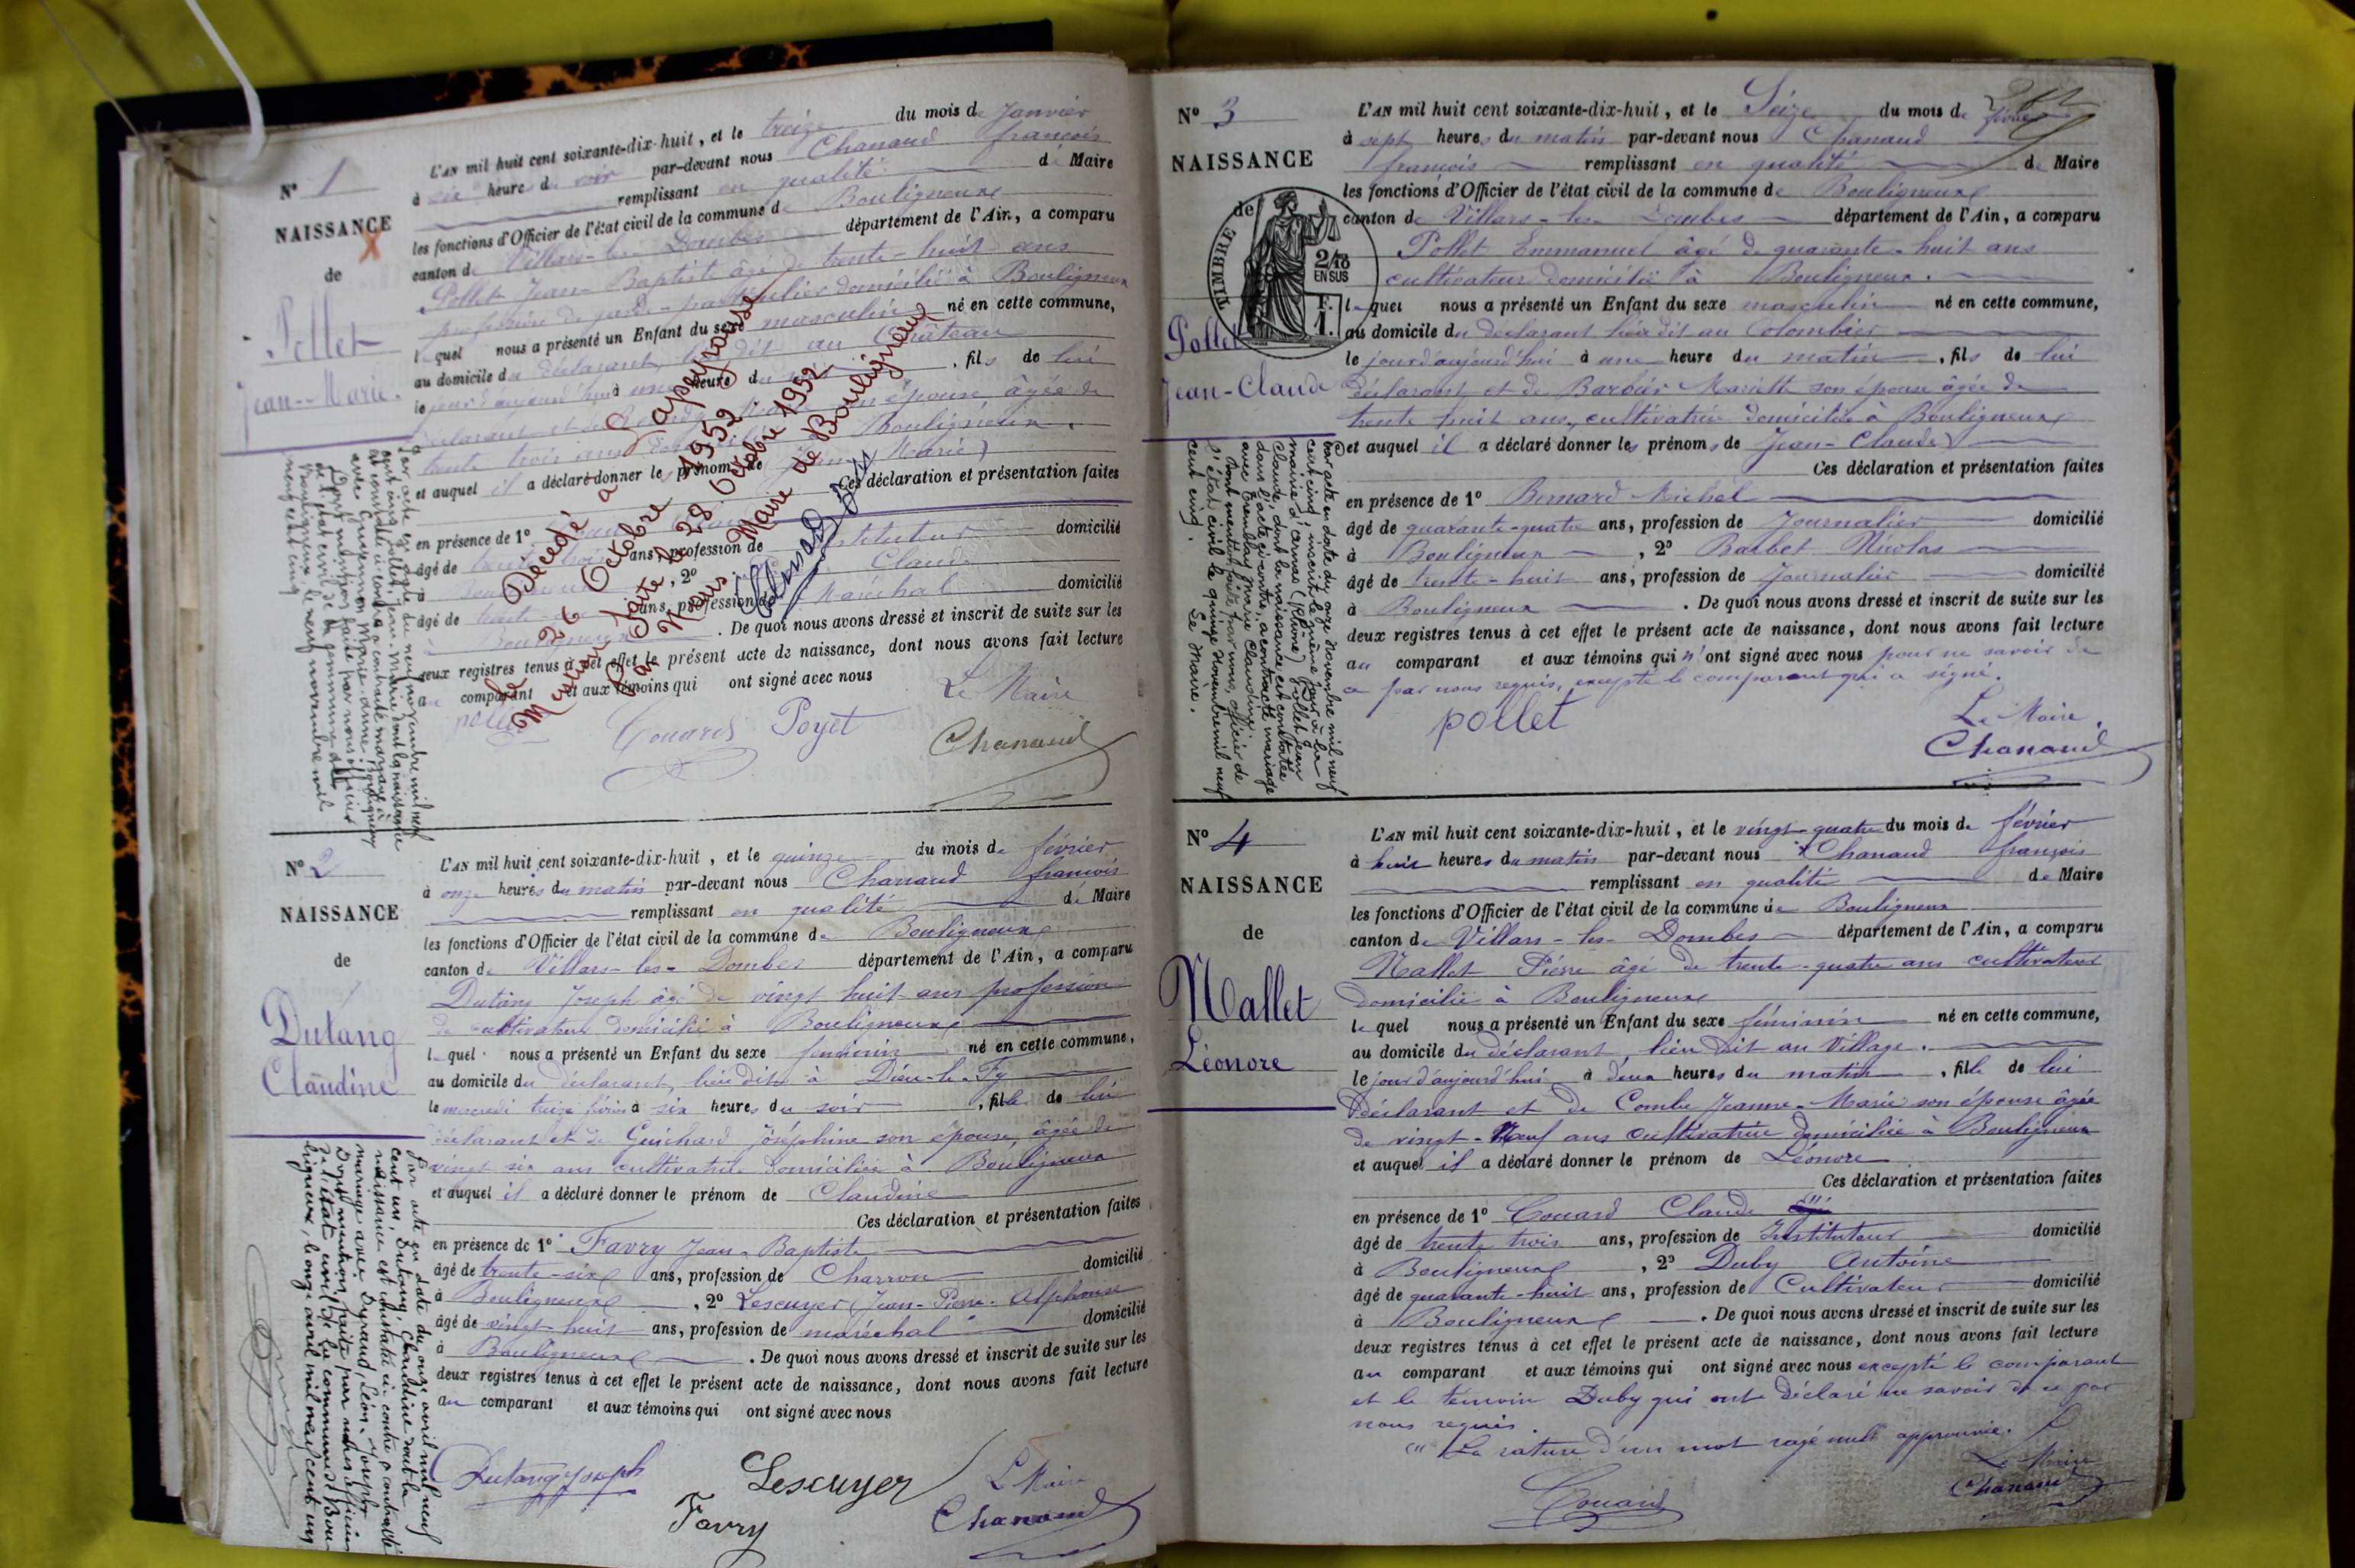 N° 1
NAISSANCE
de
Pollet
Jean-Marie.
L'AN mil huit cent soixante-dix-huit, et le treize du mois de Janvier
à six heure du soir par-devant nous Chanaud françois
remplissant en qualité de Maire
les fonctions d'Officier de l'état civil de la commune de Bouligneux
canton de Villars-les-Dombes département de l'Ain, a comparu
Pollet Jean-Baptiste âgé de trente-huit ans
profession de garde-particulier domicilié à Bouligneux
lequel nous a présenté un Enfant du sexe masculin né en cette commune,
au domicile du déclarant, lieu dit au Château
le jour d'aujourd'hui à une heure du , fils de lui
déclarant et de son épouse, âgée de
trente trois ans domiciliée à Bouligneux.
et auquel il a déclaré donner le prénom de Jean Marie
Ces déclaration et présentation faites
en présence de 1°
âgé de trente trois ans, profession de instituteur domicilié
à Bouligneux , 2° Claude
âgé de trente ans, profession de Maréchal domicilié
à Bouligneux . De quoi nous avons dressé et inscrit de suite sur les
deux registres tenus à cet effet le présent acte de naissance, dont nous avons fait lecture
au comparant et aux témoins qui ont signé avec nous
Le Maire
pollet Couard Poyet Chanaud
Décédé à Lapeyrouse
le 26 Octobre 1952
Mention faite le 28 Octobre 1952
Par Nous Maire de Bouligneux
N° 2
NAISSANCE
de
Dutang
Claudine
L'AN mil huit cent soixante-dix-huit, et le quinze du mois de février
à onze heures du matin par-devant nous Chanaud francois
remplissant en qualité de Maire
les fonctions d'Officier de l'état civil de la commune de Bouligneux
canton de Villars-les-Dombes département de l'Ain, a comparu
Dutang Joseph âgé de vingt huit ans profession
de cultivateur domicilié à Bouligneux
lequel nous a présenté un Enfant du sexe féminin né en cette commune,
au domicile du déclarant, lieu dit à Dieu-le-Fy
le mercredi treize février à six heures du soir , fille de lui
déclarant et de Guichard Joséphine son épouse, âgée de
vingt six ans cultivatrice domiciliée à Bouligneux
et auquel il a déclaré donner le prénom de Claudine
Ces déclaration et présentation faites
en présence de 1° Favry Jean-Baptiste
âgé de trente-six ans, profession de Charron domicilié
à Bouligneux , 2° Lescuyer Jean-Pierre-Alphonse
âgé de vingt-huit ans, profession de maréchal domicilié
à Bouligneux . De quoi nous avons dressé et inscrit de suite sur les
deux registres tenus à cet effet le présent acte de naissance, dont nous avons fait lecture
au comparant et aux témoins qui ont signé avec nous
Dutang Joseph Lescuyer Le Maire
Favry Chanaud
Par acte en date du onze avril mil neuf
cent un, Dutang, Claudine dont la
naissance est constatée ci-contre a contracté
mariage avec Dyraud, Léon, Joseph
Dont mention faite par nous officier
de l'état civil de la commune de Bou-
ligneux, le onze avril mil neuf cent un
N° 3
NAISSANCE
de
TIMBRE
2/10 EN SUS
F. 1.
Pollet
Jean-Claude
L'AN mil huit cent soixante-dix-huit, et le Seize du mois de février
à sept heures du matin par-devant nous Chanaud
françois remplissant en qualité de Maire
les fonctions d'Officier de l'état civil de la commune de Bouligneux
canton de Villars-les-Dombes département de l'Ain, a comparu
Pollet Emmanuel âgé de quarante-huit ans
cultivateur domicilié à Bouligneux.
lequel nous a présenté un Enfant du sexe masculin né en cette commune,
au domicile du déclarant lieu dit au Colombier
le jour d'aujourd'hui à une heure du matin , fils de lui
déclarant et de Barbier Mariette son épouse âgée de
trente huit ans, cultivatrice domiciliée à Bouligneux
et auquel il a déclaré donner les prénoms de Jean-Claude
Ces déclaration et présentation faites
en présence de 1° Bernard Michel
âgé de quarante-quatre ans, profession de Journalier domicilié
à Bouligneux , 2° Barbet Nicolas
âgé de trente-huit ans, profession de Journalier domicilié
à Bouligneux . De quoi nous avons dressé et inscrit de suite sur les
deux registres tenus à cet effet le présent acte de naissance, dont nous avons fait lecture
au comparant et aux témoins qui n'ont signé avec nous pour ne savoir de
ce par nous requis, excepté le comparant qui a signé.
pollet Le Maire,
Chanaud
Par acte en date du onze Novembre mil neuf
cent cinq, inscrit le même jour à la
mairie d'Arnas (Rhône) Pollet Jean
Claude, dont la naissance est constatée
dans l'acte ci-contre, a contracté mariage
avec Tremblay Marie Claudine.
Dont mention faite par nous, officier de
l'état civil le quinze Novembre mil neuf
cent cinq. Le Maire.
N° 4
NAISSANCE
de
Mallet
Léonore
L'AN mil huit cent soixante-dix-huit, et le vingt-quatre du mois de février
à huit heures du matin par-devant nous Chanaud françois
remplissant en qualité de Maire
les fonctions d'Officier de l'état civil de la commune de Bouligneux
canton de Villars-les-Dombes département de l'Ain, a comparu
Mallet Pierre âgé de trente-quatre ans cultivateur
domicilié à Bouligneux
lequel nous a présenté un Enfant du sexe féminin né en cette commune,
au domicile du déclarant, lieu dit au Village.
le jour d'aujourd'hui à deux heures du matin , fille de lui
déclarant et de Combe Jeanne-Marie son épouse âgée
de vingt-Neuf ans cultivatrice domiciliée à Bouligneux
et auquel il a déclaré donner le prénom de Léonore
Ces déclaration et présentation faites
en présence de 1° Couard Claude
âgé de trente trois ans, profession de Instituteur domicilié
à Bouligneux , 2° Duby Antoine
âgé de quarante-huit ans, profession de Cultivateur domicilié
à Bouligneux . De quoi nous avons dressé et inscrit de suite sur les
deux registres tenus à cet effet le présent acte de naissance, dont nous avons fait lecture
au comparant et aux témoins qui ont signé avec nous excepté le comparant
et le témoin Duby qui ont déclaré ne savoir de ce par
nous requis.
La rature d'un mot rayé nul approuvée.
Le Maire
Couard Chanaud